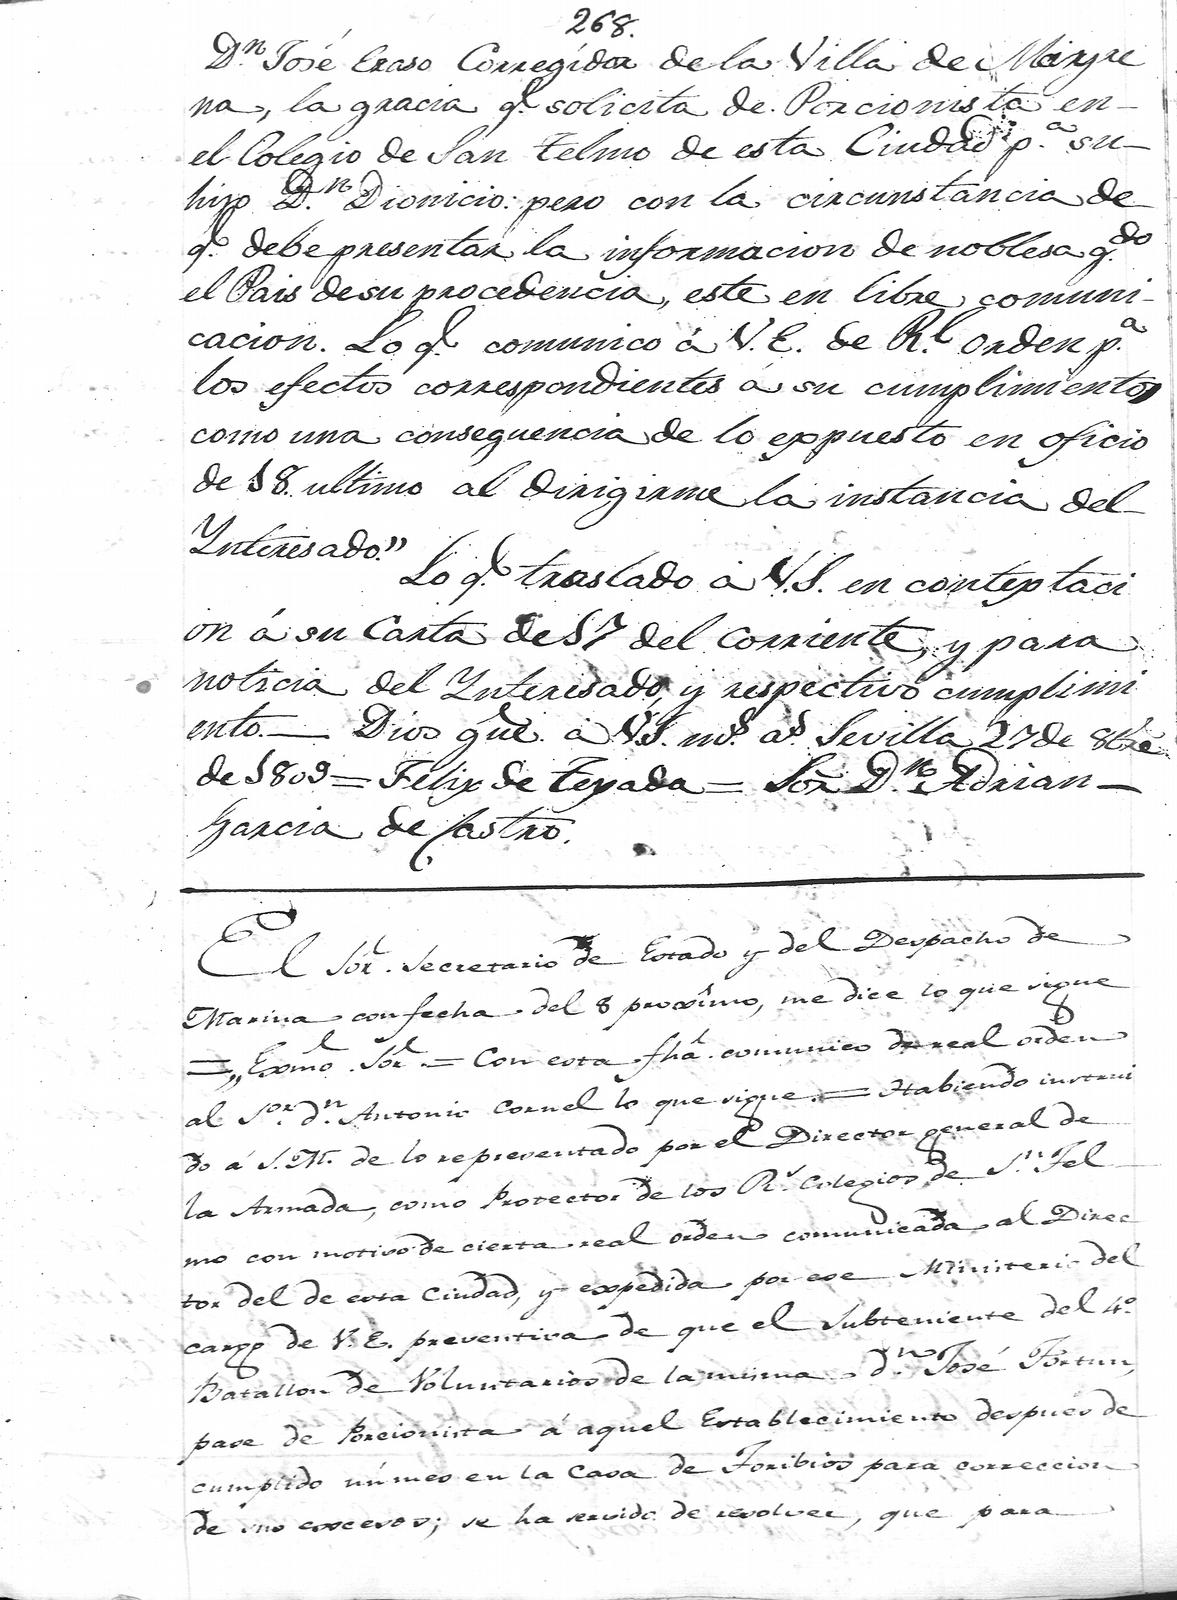 268.
Dn. José Eraso Corregidor de la Villa de Mayre
na, la gracia q.e solicita de Porcionista en
el Colegio de San Telmo de esta Ciudad p.a su
hijo D.n Dionicio: pero con la circunstancia de
q.e debe presentar la informacion de noblesa q.do
el Pais de su procedencia, este en libre comuni-
cacion. Lo q.e comunico á V.E. de R.l orden p.a
los efectos correspondientes á su cumplimento,
como una consequencia de lo expuesto en oficio
de 18. ultimo al dirigirme la instancia del
Ynteresado."
Lo q.e traslado á V.S. en contextaci
on á su Carta de 17 del corriente, y para
noticia del Ynteresado, y respectivo cumplimi
ento.— Dios gue. á V.S. m.s a.s Sevilla 27 de 8bre
de 1809 = Felix de Texada = Sor. D.n Adrian
Garcia de Castro.
El Sor. Secretario de Estado y del Despacho de
Marina con fecha del 8 proximo, me dice lo que sigue
= „Exmo. Sor. = Con esta fha. comunico de real orden
al S.or d.n Antonio Cornel lo que sigue. = Habiendo instrui
do á S.M. de lo representado por el Director general de
la Armada, como Protector de los R.s Colegios de S.n Tel
mo con motivo de cierta real orden comunicada al Direc
tor del de esta Ciudad, y expedida por ese Ministerio del
cargo de V.E. preventiva de que el Subteniente del 4.o
Batallon de Voluntarios de la misma d.n José Fortun,
pase de Porcionista á aquel Establecimiento despues de
cumplido un mes en la Casa de Toribios para correccion
de sus excesos; se ha servido de resolver, que para